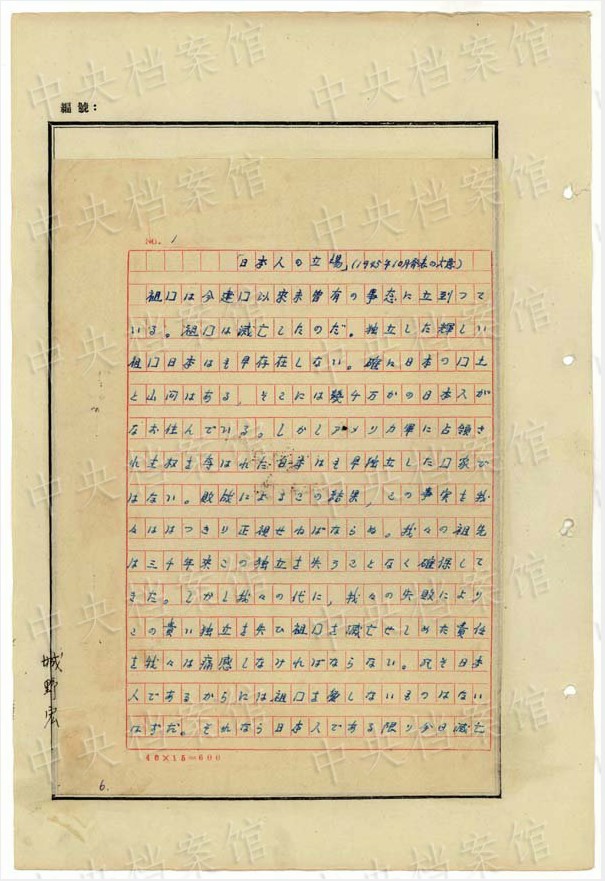 編號:
NO. 1
「日本人の立場」(1945年10月発表の大原)
祖囗は今建囗以来未曽有の事态に立到つて
いる。祖囗は滅亡したのだ。独立した輝しい
祖囗日本はも早存在しない。確に日本の囗土
と山河はある。そこには幾千万かの日本人が
なお住んでゐる。しかしアメリカ軍に占領さ
れ はも早独立した囗家で
はない。敗战によるこの結果、この事実を我
々ははつきり正視せねばならぬ。我々の祖先
は三千年来この独立を失うことなく確保して
きた。しかし我々の代に、我々の失敗により
この貴い独立を失ひ祖囗を滅亡せしめた責任
を我々は痛感しなければならない。凡そ日本
人であるからには祖囗を愛しないものはない
はずだ。それなら日本人である限り今日滅亡
40×15=600
城野宏
6.
中央档案馆